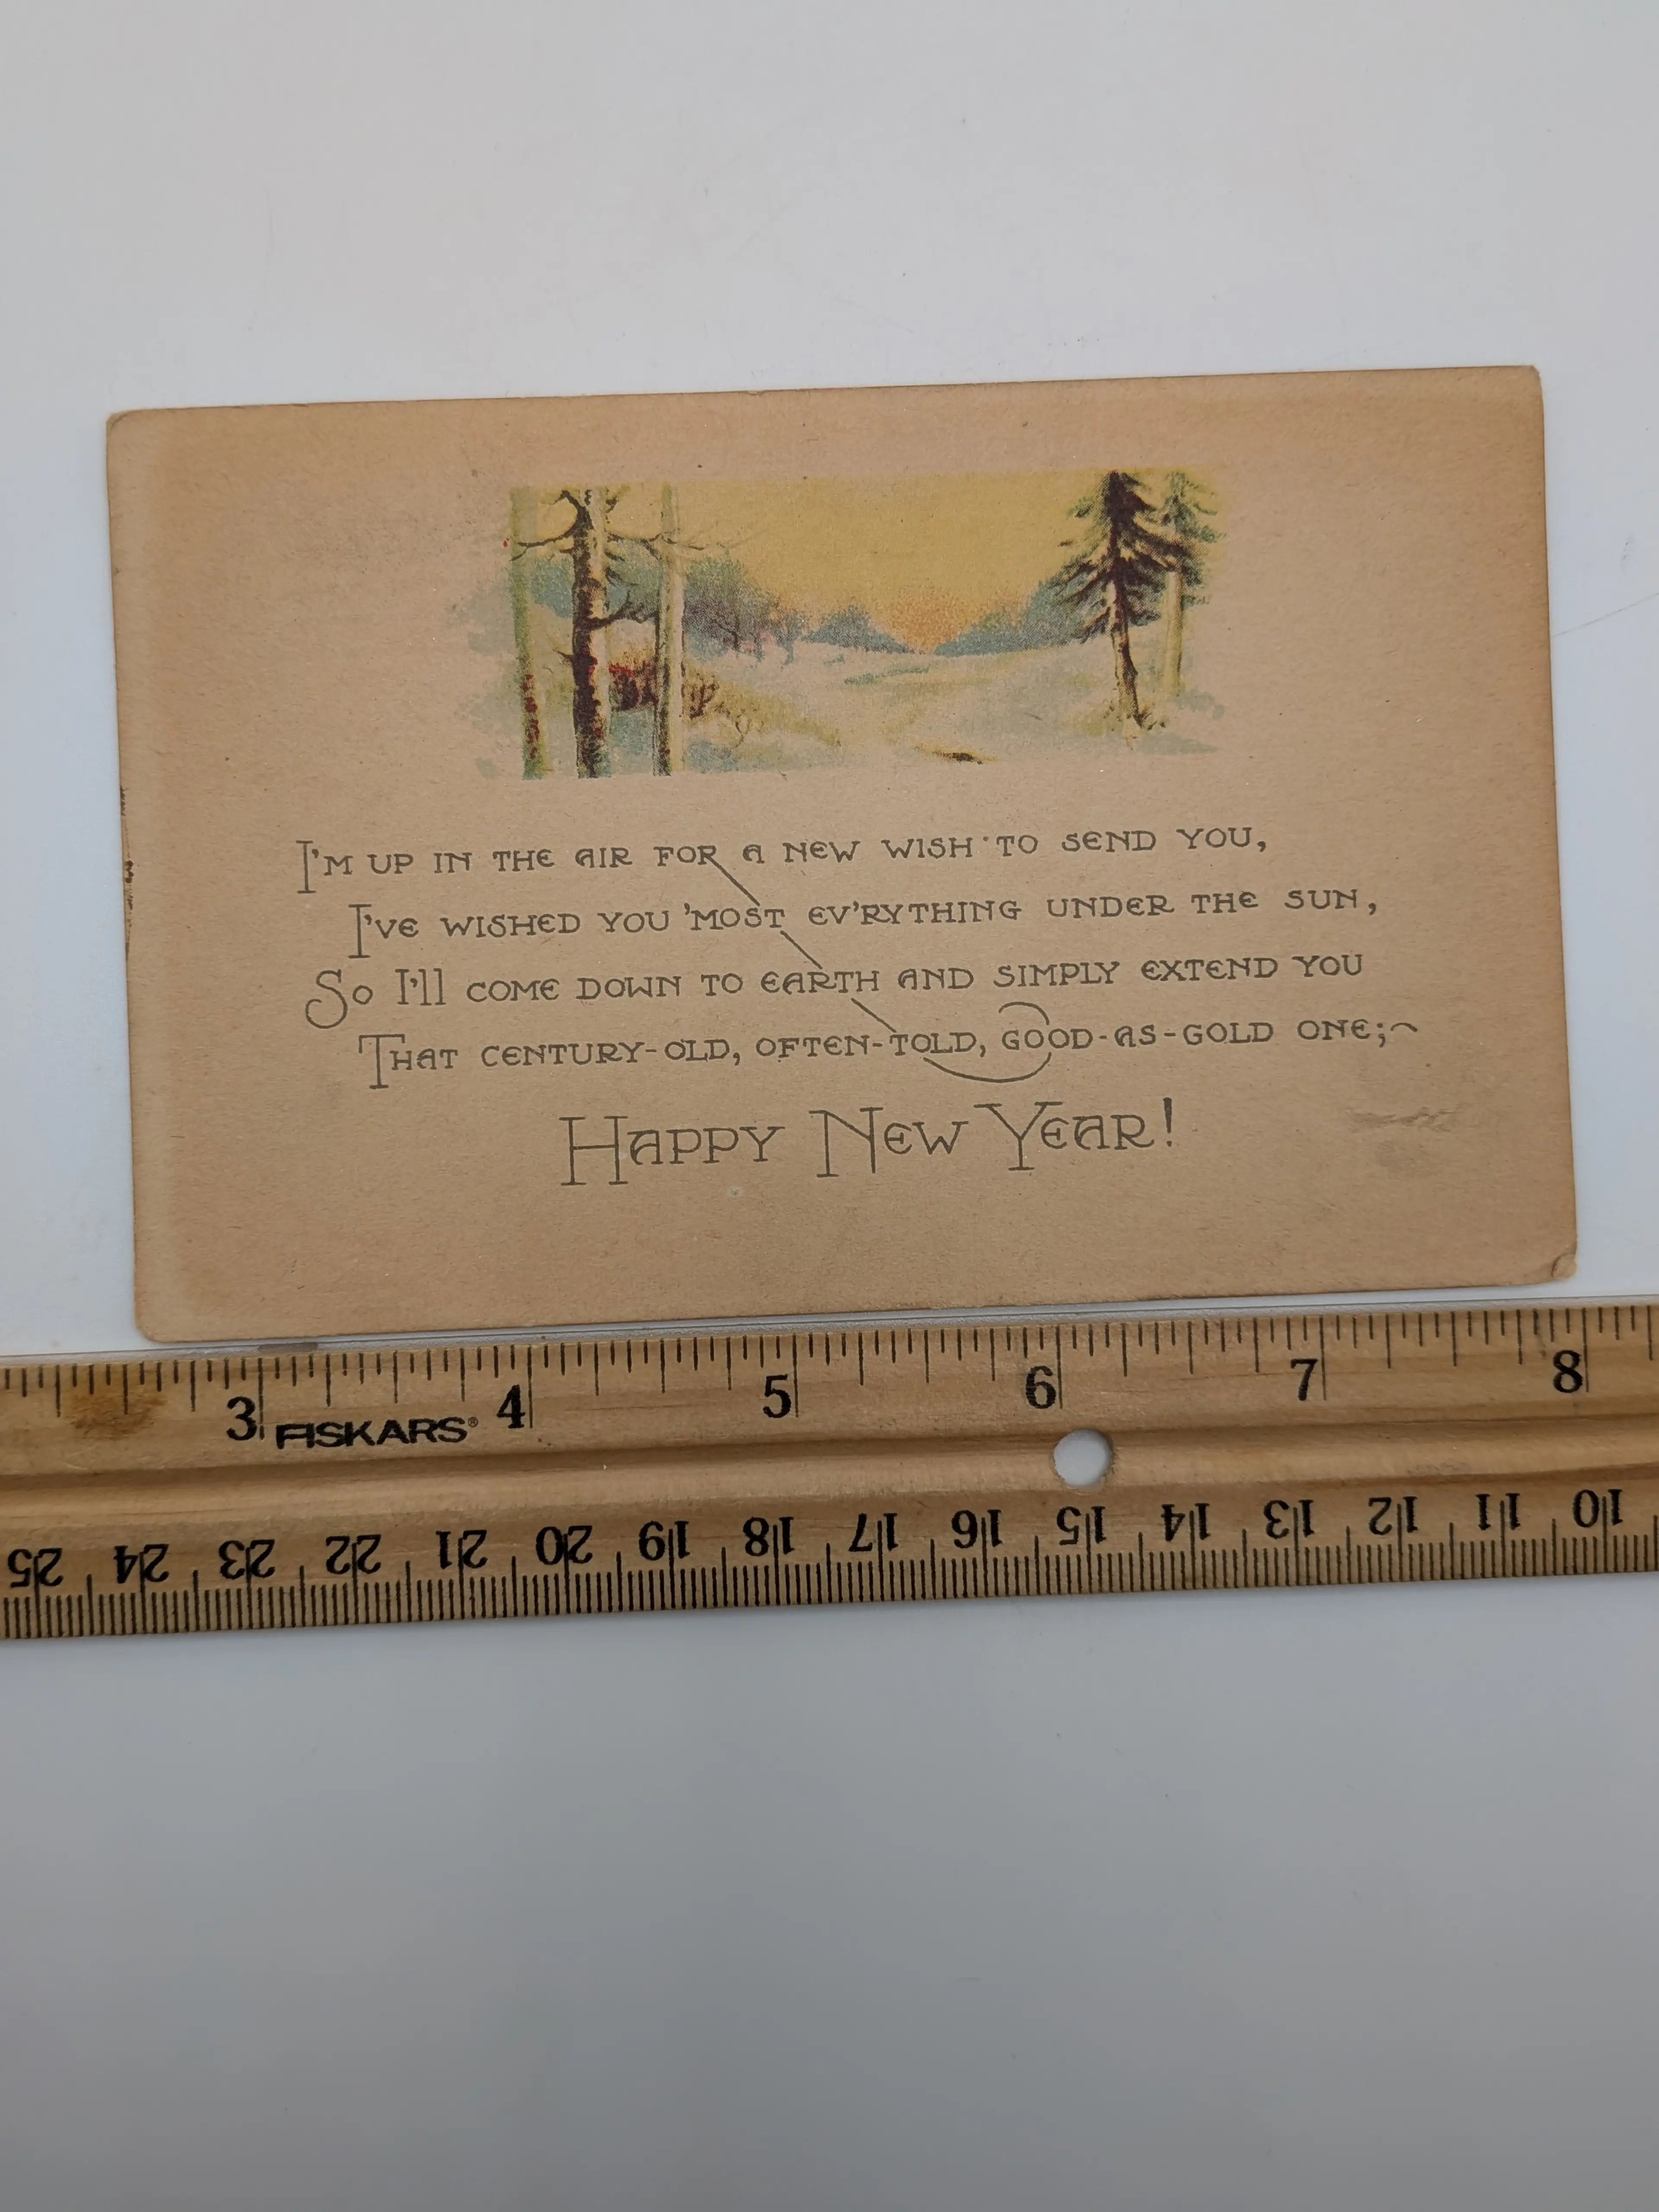 I'M UP IN THE AIR FOR A NEW WISH TO SEND YOU,
I'VE WISHED YOU 'MOST EV'RYTHING UNDER THE SUN,
So I'll COME DOWN TO EARTH AND SIMPLY EXTEND YOU
THAT CENTURY-OLD, OFTEN-TOLD, GOOD-AS-GOLD ONE;~
HAPPY NEW YEAR!
3 4 5 6 7 8
FISKARS®
25 24 23 22 21 20 19 18 17 16 15 14 13 12 11 10